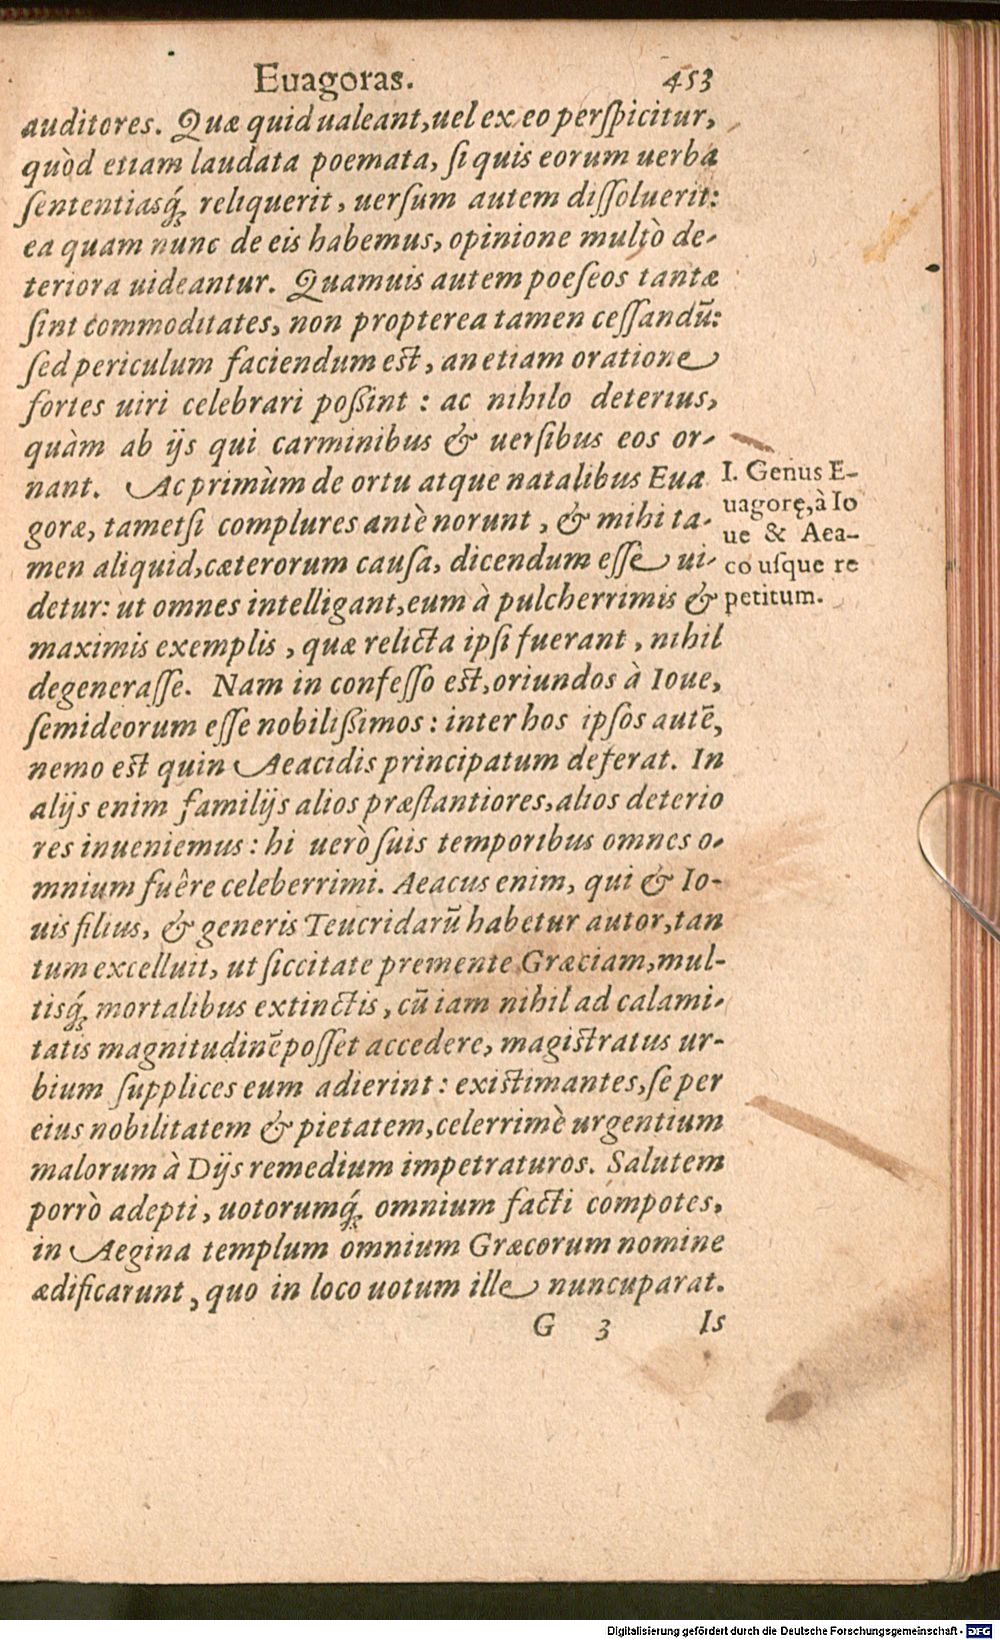 Euagoras. 453
auditores. Quæ quid ualeant, uel ex eo perſpicitur,
quòd etiam laudata poemata, ſi quis eorum uerba
ſententiasq́; reliquerit, uerſum autem diſſoluerit:
ea quam nunc de eis habemus, opinione multò de-
teriora uideantur. Quamuis autem poeſeos tantæ
ſint commoditates, non propterea tamen ceſſandū:
ſed periculum faciendum eſt, an etiam oratione
fortes uiri celebrari poßint : ac nihilo deterius,
quàm ab ijs qui carminibus & uerſibus eos or-
nant. Ac primùm de ortu atque natalibus Eua
goræ, tametſi complures antè norunt, & mihi ta-
men aliquid, cæterorum cauſa, dicendum eſſe ui-
detur: ut omnes intelligant, eum à pulcherrimis &
maximis exemplis, quæ relicta ipſi fuerant, nihil
degeneraſſe. Nam in confeſſo eſt, oriundos à Ioue,
ſemideorum eſſe nobilißimos: inter hos ipſos autē,
nemo eſt quin Aeacidis principatum deferat. In
alijs enim familijs alios præſtantiores, alios deterio
res inueniemus: hi uerò ſuis temporibus omnes o-
mnium fuêre celeberrimi. Aeacus enim, qui & Io-
uis filius, & generis Teucridarū habetur autor, tan
tum excelluit, ut ſiccitate premente Græciam, mul-
tisq́; mortalibus extinctis, cū iam nihil ad calami-
tatis magnitudinē poſſet accedere, magiſtratus ur-
bium ſupplices eum adierint: exiſtimantes, ſe per
eius nobilitatem & pietatem, celerrimè urgentium
malorum à Dijs remedium impetraturos. Salutem
porrò adepti, uotorumq́; omnium facti compotes,
in Aegina templum omnium Græcorum nomine
ædificarunt, quo in loco uotum ille nuncuparat.
G 3 Is
I. Genus E-
uagorę, à Io
ue & Aea-
co uſque re
petitum.
Digitalisierung gefördert durch die Deutsche Forschungsgemeinschaft - DFG